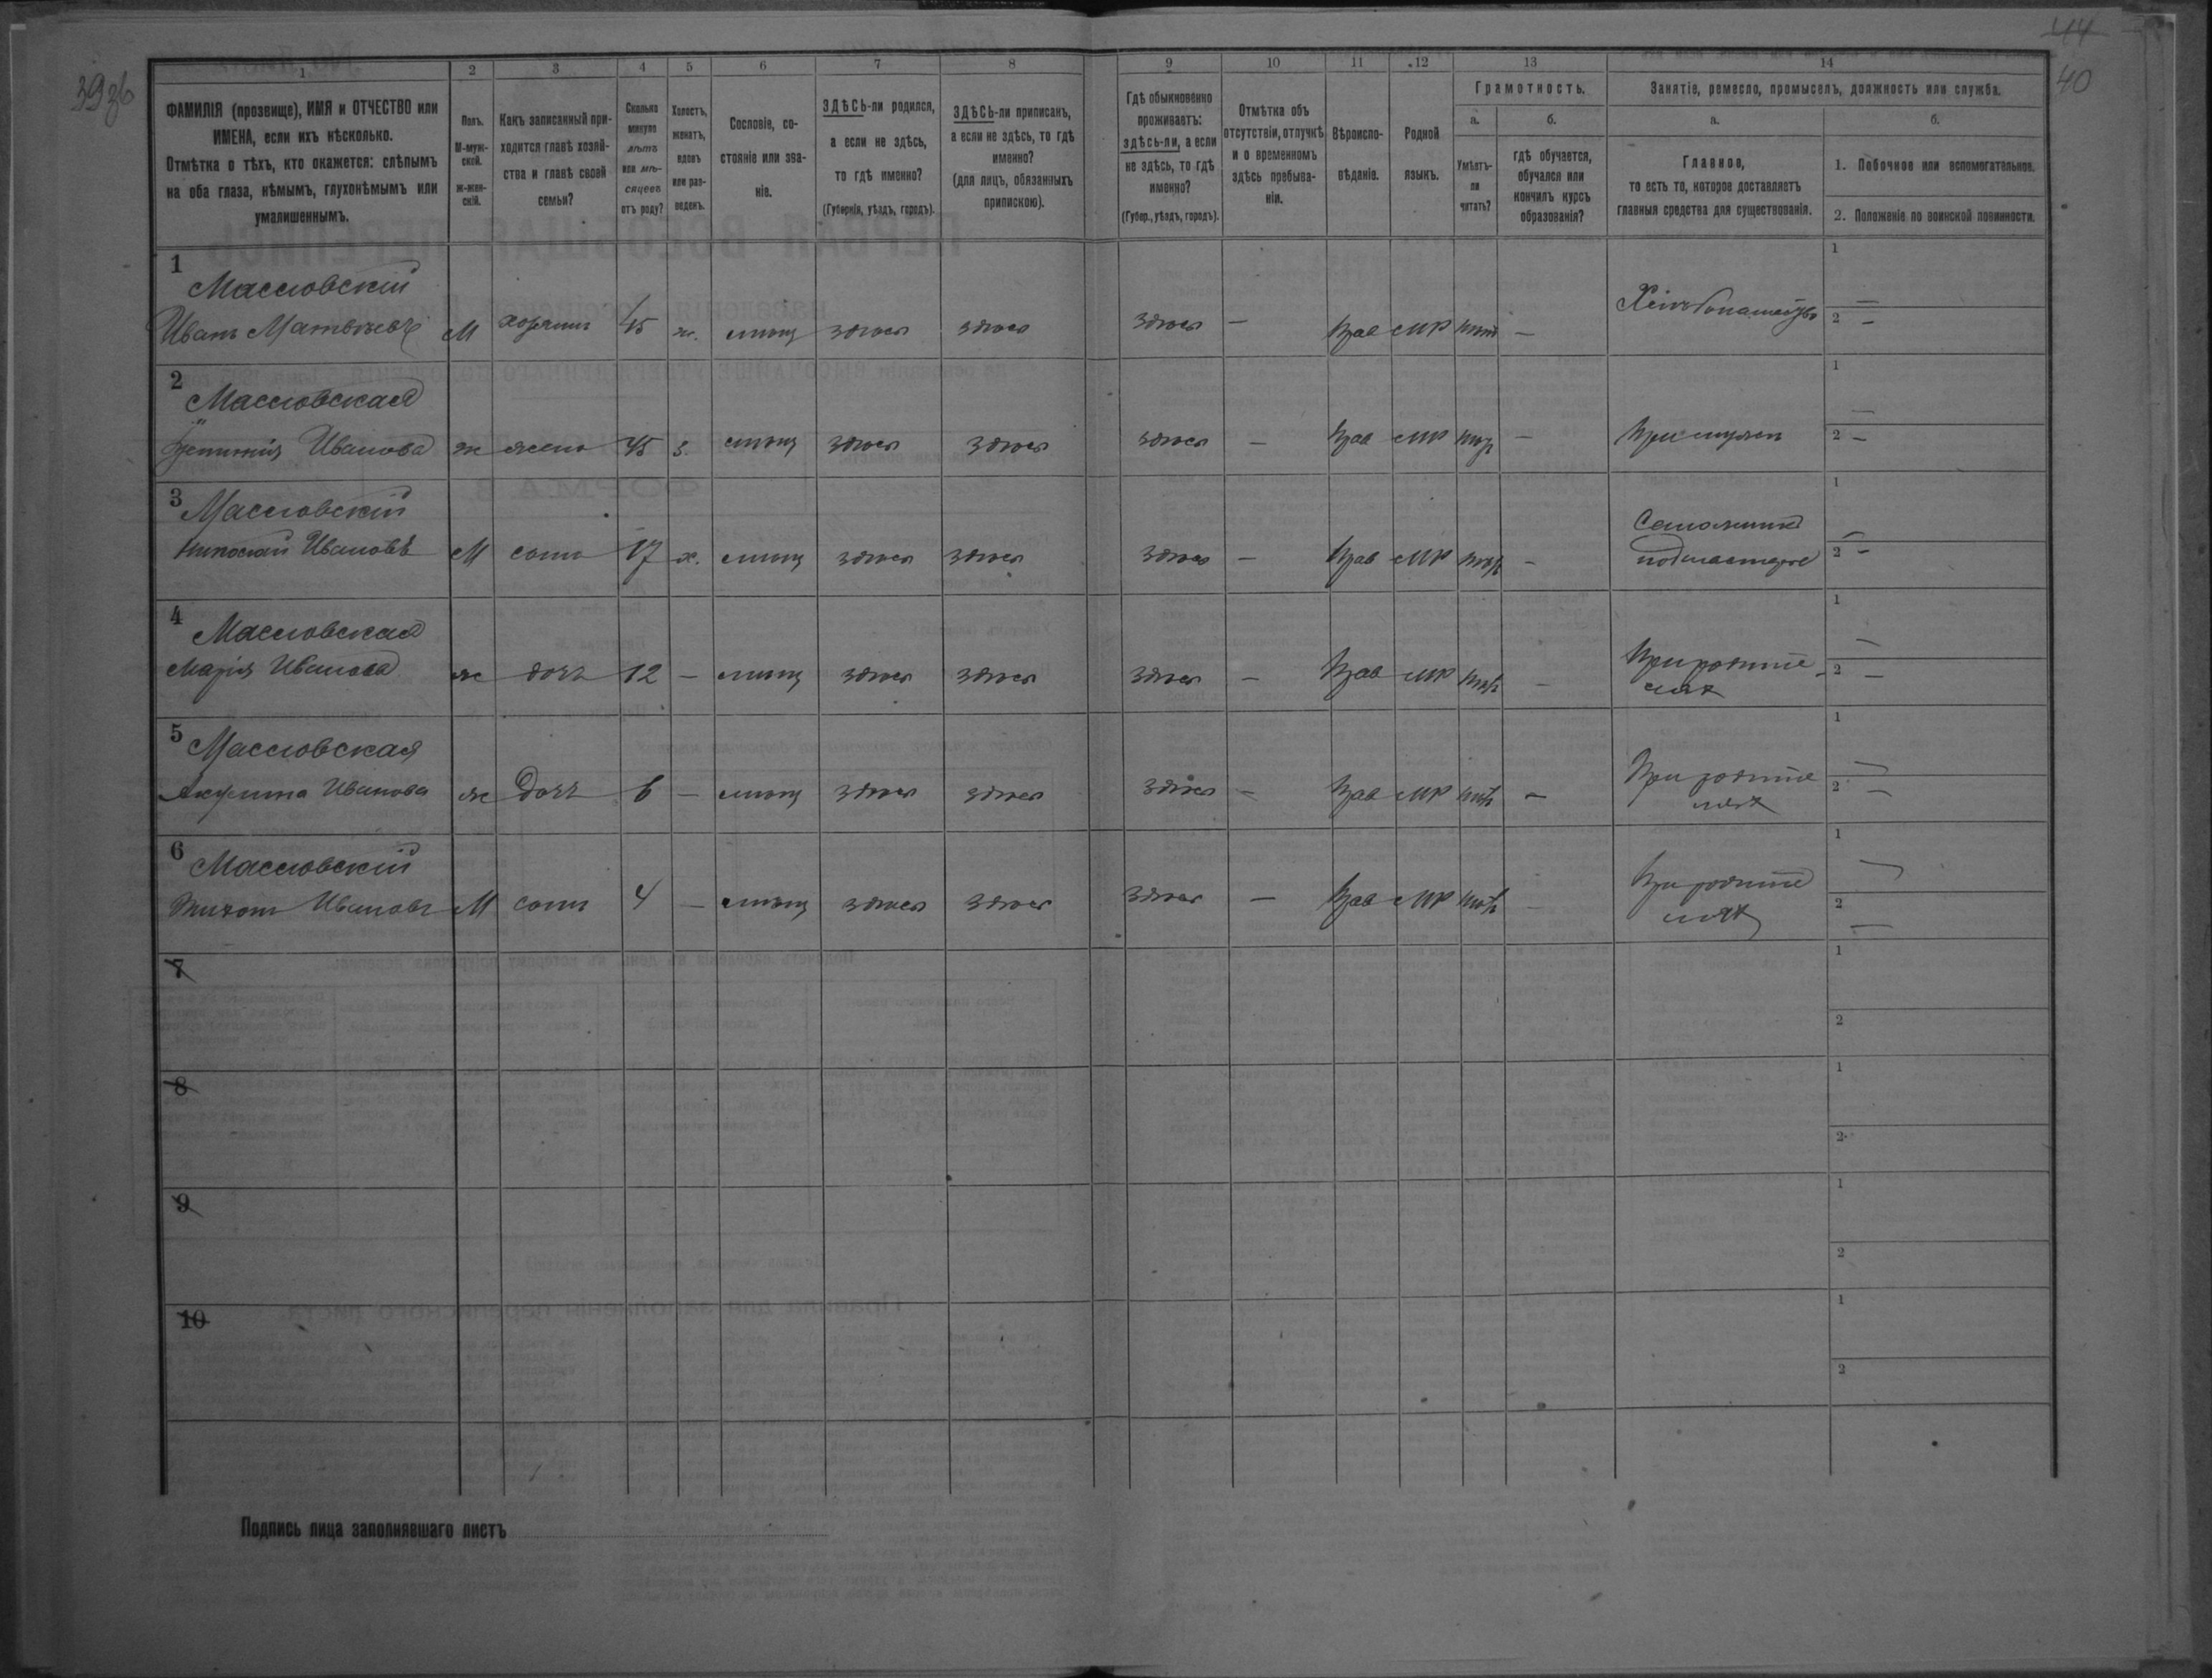 39 об
44
40
1 2 3 4 5 6 7 8 9 10 11 12 13 14
ФАМИЛІЯ (прозвище), ИМЯ и ОТЧЕСТВО или
ИМЕНА, если ихъ нѣсколько.
Отмѣтка о тѣхъ, кто окажется: слѣпымъ
на оба глаза, нѣмымъ, глухонѣмымъ или
умалишеннымъ.
Полъ.
М-муж-
ской.
ж-жен-
скій.
Какъ записанный при-
ходится главѣ хозяй-
ства и главѣ своей
семьи?
Сколько
минуло
лѣтъ
или мѣ-
сяцевъ
отъ роду?
Холостъ,
женатъ,
вдовъ
или раз-
веденъ.
Сословіе, со-
стояніе или зва-
ніе.
ЗДѢСЬ-ли родился,
а если не здѣсь,
то гдѣ именно?
(Губернія, уѣздъ, городъ).
ЗДѢСЬ-ли приписанъ,
а если не здѣсь, то гдѣ
именно?
(для лицъ, обязанныхъ
припискою).
Гдѣ обыкновенно
проживаетъ:
здѣсь-ли, а если
не здѣсь, то гдѣ
именно?
(Губер., уѣздъ, городъ).
Отмѣтка объ
отсутствіи, отлучкѣ
и о временномъ
здѣсь пребыва-
ніи.
Вѣроиспо-
вѣданіе.
Родной
языкъ.
Грамотность.
а.
Умѣетъ-
ли
читать?
б.
гдѣ обучается,
обучался или
кончилъ курсъ
образованія?
Занятіе, ремесло, промыселъ, должность или служба.
а.
Главное,
то есть то, которое доставляетъ
главныя средства для существованія.
б.
1. Побочное или вспомогательное.
2. Положеніе по воинской повинности.
1
Масловскій
Иванъ Матвѣевъ М хозяинъ 45 ж. мѣщ здѣсь здѣсь здѣсь — прав мр нѣт — Хлѣбопашецъ
1 —
2 —
2
Масловская
Иванова ж жена 45 з. мѣщ здѣсь здѣсь здѣсь — прав мр нѣт — При мужѣ
1 —
2 —
3
Масловскій
Николай Ивановъ М сынъ 17 х. мѣщ здѣсь здѣсь здѣсь — прав мр нѣт — Сапожникъ
подмастерье
1 —
2 —
4
Масловская
Марія Иванова ж дочь 12 — мѣщ здѣсь здѣсь здѣсь — прав мр нѣт — При родите-
ляхъ
1 —
2 —
5
Масловская
Акулина Иванова ж дочь 6 — мѣщ здѣсь здѣсь здѣсь — прав мр нѣт — При родите
ляхъ
1 —
2 —
6
Масловскій
Тихонъ Ивановъ М сынъ 4 — мѣщ здѣсь здѣсь здѣсь — прав мр нѣт — При родите
ляхъ
1 —
2 —
7
1
2
8
1
2
9
1
2
10
1
2
Подпись лица заполнявшаго листъ